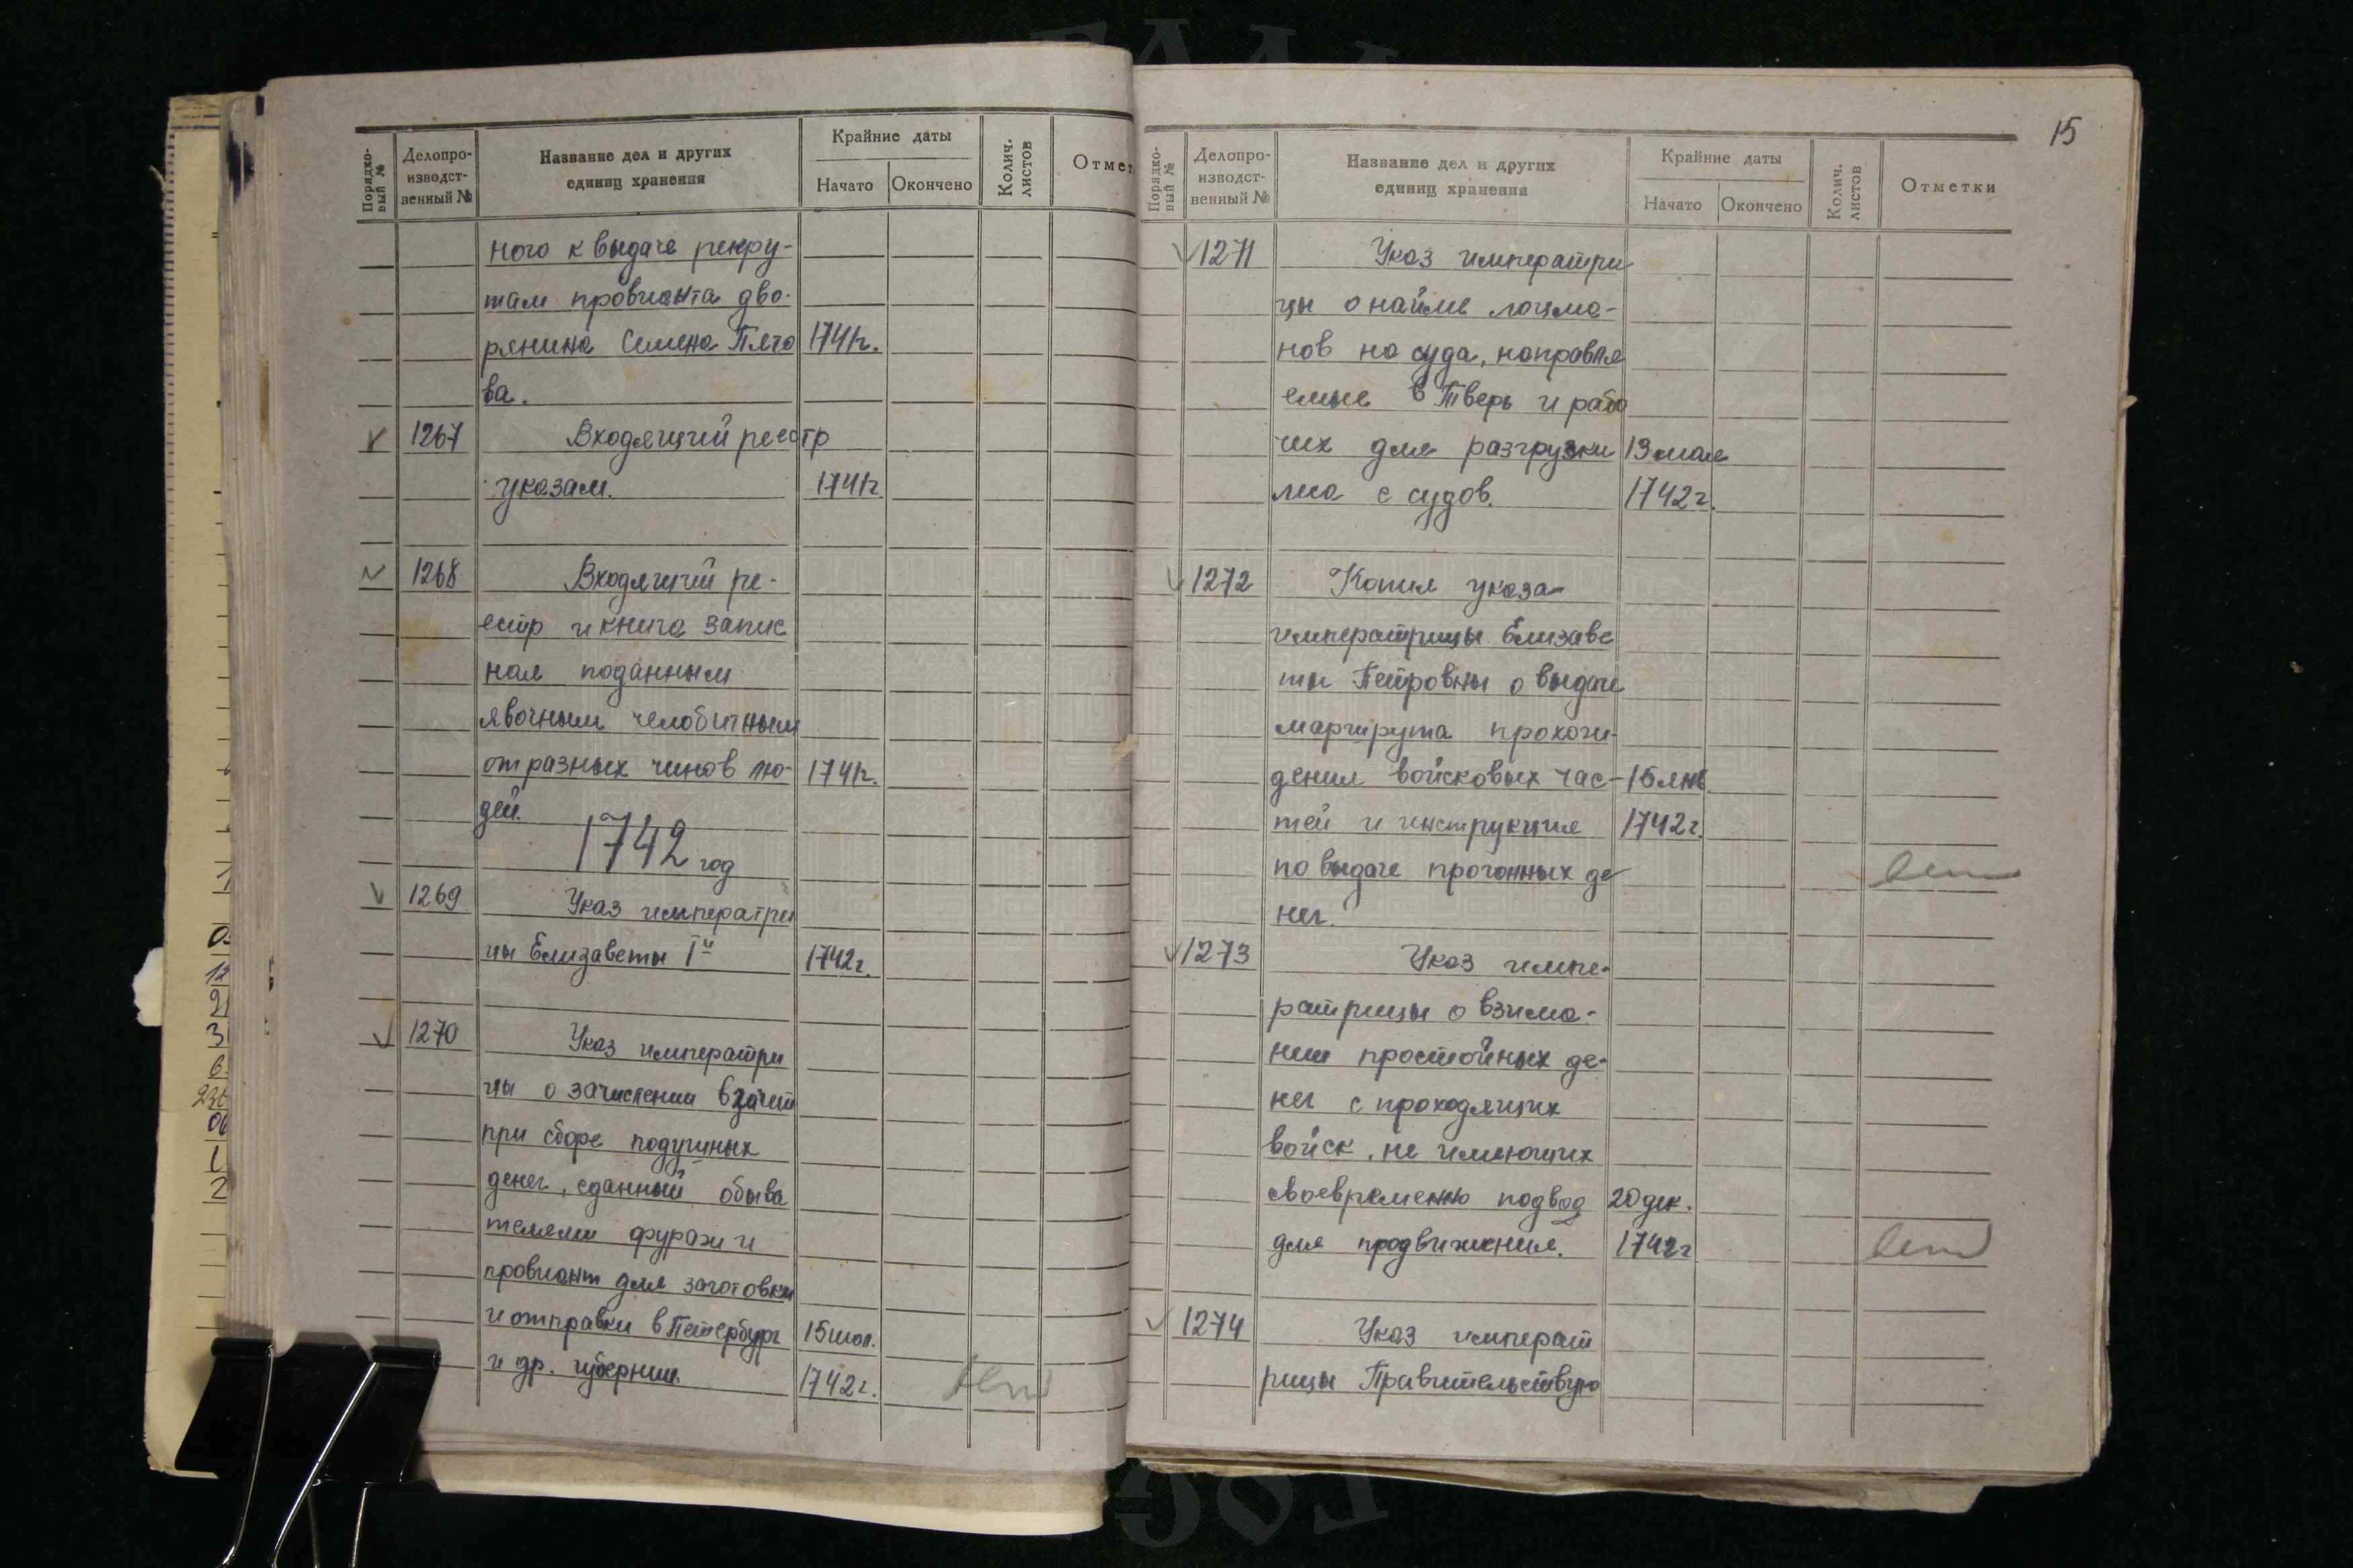 Порядко-
вый №
Делопро-
изводст-
венный №
Название дел и других
единиц хранения
Крайние даты
Начато
Окончено
Колич.
листов
Отмет
ного к выдаче рекру-
там провианта дво-
рянина Семена Пяго 1741г.
ва.
1267 Входящий реестр
указам. 1741г.
1268 Входящий ре-
естр и книга запис
ная поданным
явочным челобитным
от разных чинов лю- 1741г.
дей.
1742 год
1269 Указ императри
цы Елизаветы Iй 1742г.
1270 Указ императри
цы о зачислении в зачет
при сборе подушных
денег, сданный обыва
телями фураж и
провиант для заготовки
и отправки в Петербург 15 июл.
и др. губернии. 1742г.
15
Порядко-
вый №
Делопро-
изводст-
венный №
Название дел и других
единиц хранения
Крайние даты
Начато
Окончено
Колич.
листов
Отметки
1271 Указ императри
цы о найме лоцма-
нов на суда, направля
емые в Тверь и рабо
чих для разгрузки 13 мая
леса с судов. 1742г.
1272 Копия указа
императрицы Елизаве
ты Петровны о выдаче
маршрута прохож-
дения войсковых час- 15 янв.
тей и инструкция 1742г.
по выдаче прогонных де
нег.
1273 Указ импе-
ратрицы о взима-
нии простойных де-
нег с проходящих
войск, не имеющих
своевременно подвод 20 дек.
для продвижения. 1742г
1274 Указ императ
рицы Правительствую